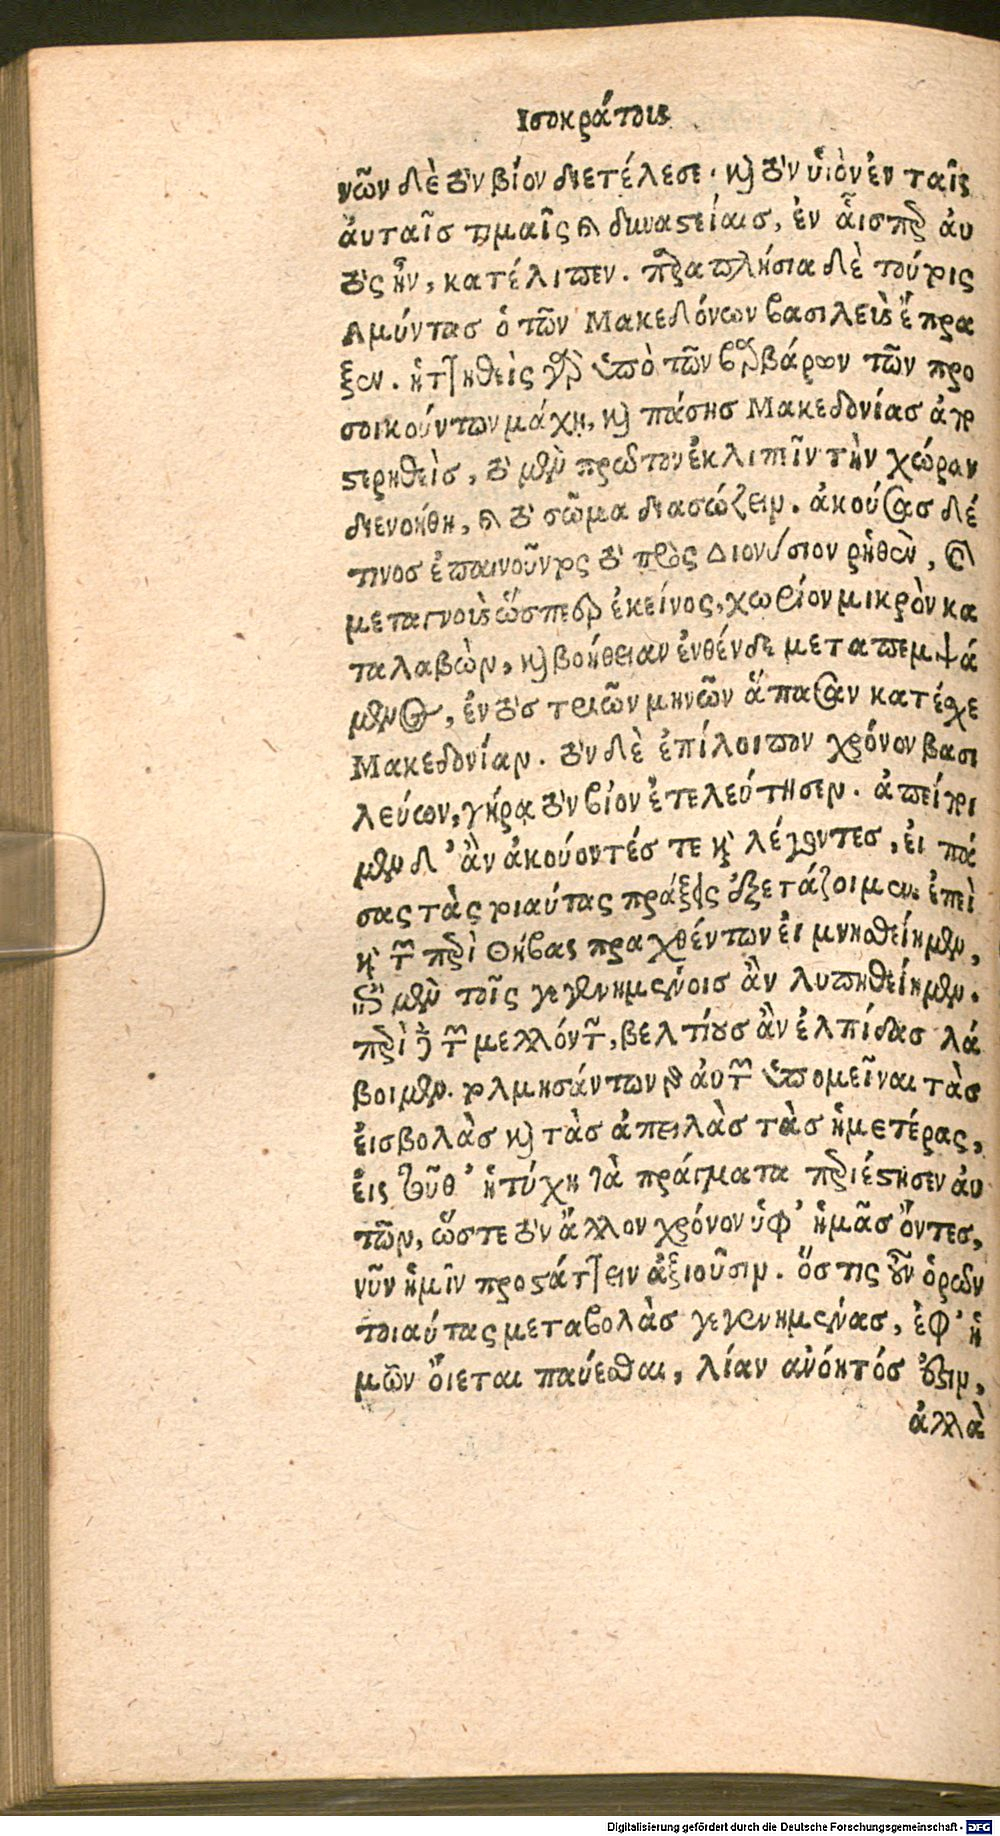 Ισοκράτους
νῶν δὲ τὸν βίον διετέλεσε· καὶ τὸν ὑιὸν ἐν ταῖς
ἀυταῖσ τιμαῖς καὶ δυναστείαισ, ἐν ἇισπερ ἀυ
τὸς ἦν, κατέλιπεν. παραπλήσια δὲ τούτοις
Αμύντασ ὁ τῶν Μακεδόνων βασιλεὺς ἔπρα
ξεν. ἡττηθεὶς γὰρ ὑπὸ τῶν βαρβάρων τῶν προ
σοικούντων μάχῃ, καὶ πάσησ Μακεδονίασ ἀπο
στερηθεὶσ, τὸ μὲν πρῶτον ἐκλιπεῖν τὴν χώραν
διενοήθη, καὶ τὸ σῶμα διασώζειν. ἀκούσασ δέ
τινοσ ἐπαινοῦντος τὸ πρὸς Διονύσιον ῥηθὲν, καὶ
μεταγνοὺς ὥσπερ ἐκείνος, χωρίον μικρὸν κα
ταλαβὼν, καὶ βοήθειαν ἐνθένδε μεταπεμψά
μενος, ἐντὸσ τριῶν μηνῶν ἅπασαν κατέσχε
Μακεδονίαν. τὸν δὲ ἐπίλοιπον χρόνον βασι
λεύων, γήρᾳ τὸν βίον ἐτελεύτησεν. ἀπείποι
μεν δ' ἂν ἀκούοντέσ τε καὶ λέγοντεσ, ἐι πά
σας τὰς τοιαύτας πράξεις ἐξετάζοιμεν. ἐπεὶ
καὶ τῶν περὶ Θήβας πραχθέντων ἐι μνησθείημεν,
ἐπὶ μὲν τοῖς γεγενημένοισ ἂν λυπηθείημεν.
περὶ δὲ τῶν μελλόντων, βελτίουσ ἂν ἐλπίδασ λά
βοιμεν. τολμησάντων γὰρ ἀυτῶν ὑπομεῖναι τὰσ
ἐισβολὰσ καὶ τὰσ ἀπειλὰσ τὰσ ἡμετέρας,
ἐις τοῦθ' ἡ τύχη τὰ πράγματα περιέστησεν ἀυ
τῶν, ὥστε τὸν ἄλλον χρόνον ὑφ' ἡμᾶσ ὄντεσ,
νῦν ἡμῖν προστάττειν ἀξιοῦσιν. ὅστις οὖν ὁρῶν
τοιαύτας μεταβολὰσ γεγενημένασ, ἐφ' ἡ
μῶν ὄιεται παύεσθαι, λίαν ἀνόητόσ ἐστιν,
ἀλλὰ
Digitalisierung gefördert durch die Deutsche Forschungsgemeinschaft - DFG